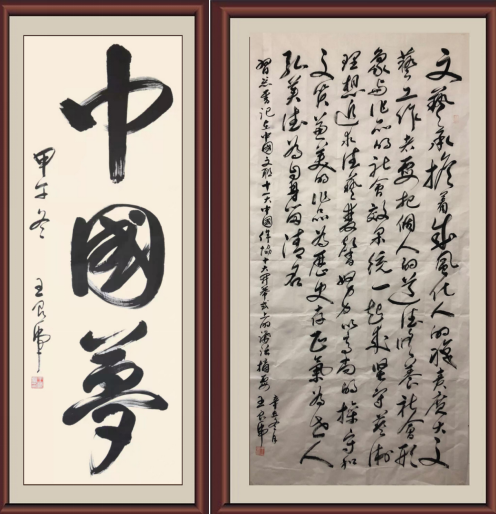 中國夢
甲午冬
王良虎
文藝承擔着成風化人的職責廣大文
藝工作者要把個人的道德修養社會形
象与作品的社會效果統一起來堅守藝術
理想追求德藝雙馨努力以高尚的操守和
文質兼美的作品為歷史存正氣為世人
弘美德為自身留清名
習总書記在中國文聯十一大中國作協十大開幕式上的講話摘要
辛丑冬月
王良虎